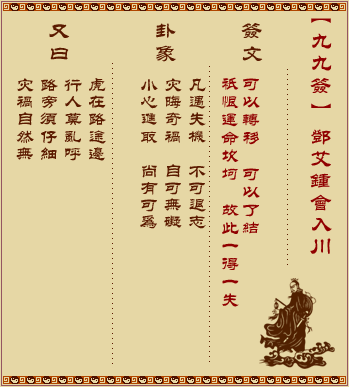 【九九簽】 鄧艾鍾會入川
簽文
可以轉移 可以了結
祇恨運命坎坷 故此一得一失
卦象
凡遇失機 不可退志
灾晦奇禍 自可無礙
小心進取 尚有可爲
又曰
虎在路途邊
行人莫亂呼
路旁須仔細
灾禍自然無